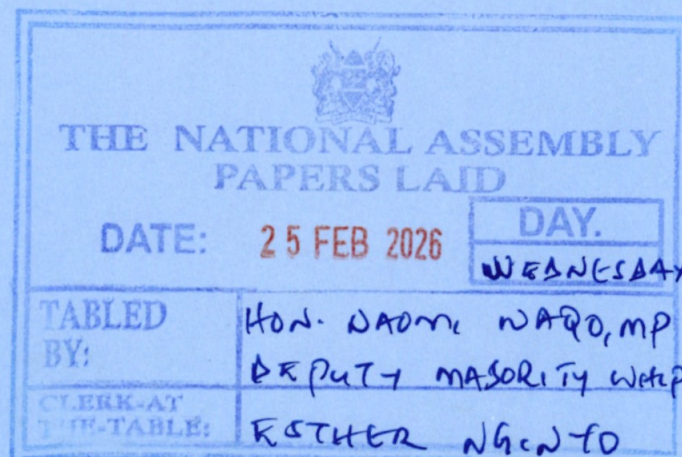 THE NATIONAL ASSEMBLY
PAPERS LAID
DATE: 25 FEB 2026
DAY.
WEDNESDAY
TABLED BY:
HON. NAOMI WAQO, MP
DEPUTY MAJORITY WHIP
CLERK-AT THE-TABLE:
ESTHER